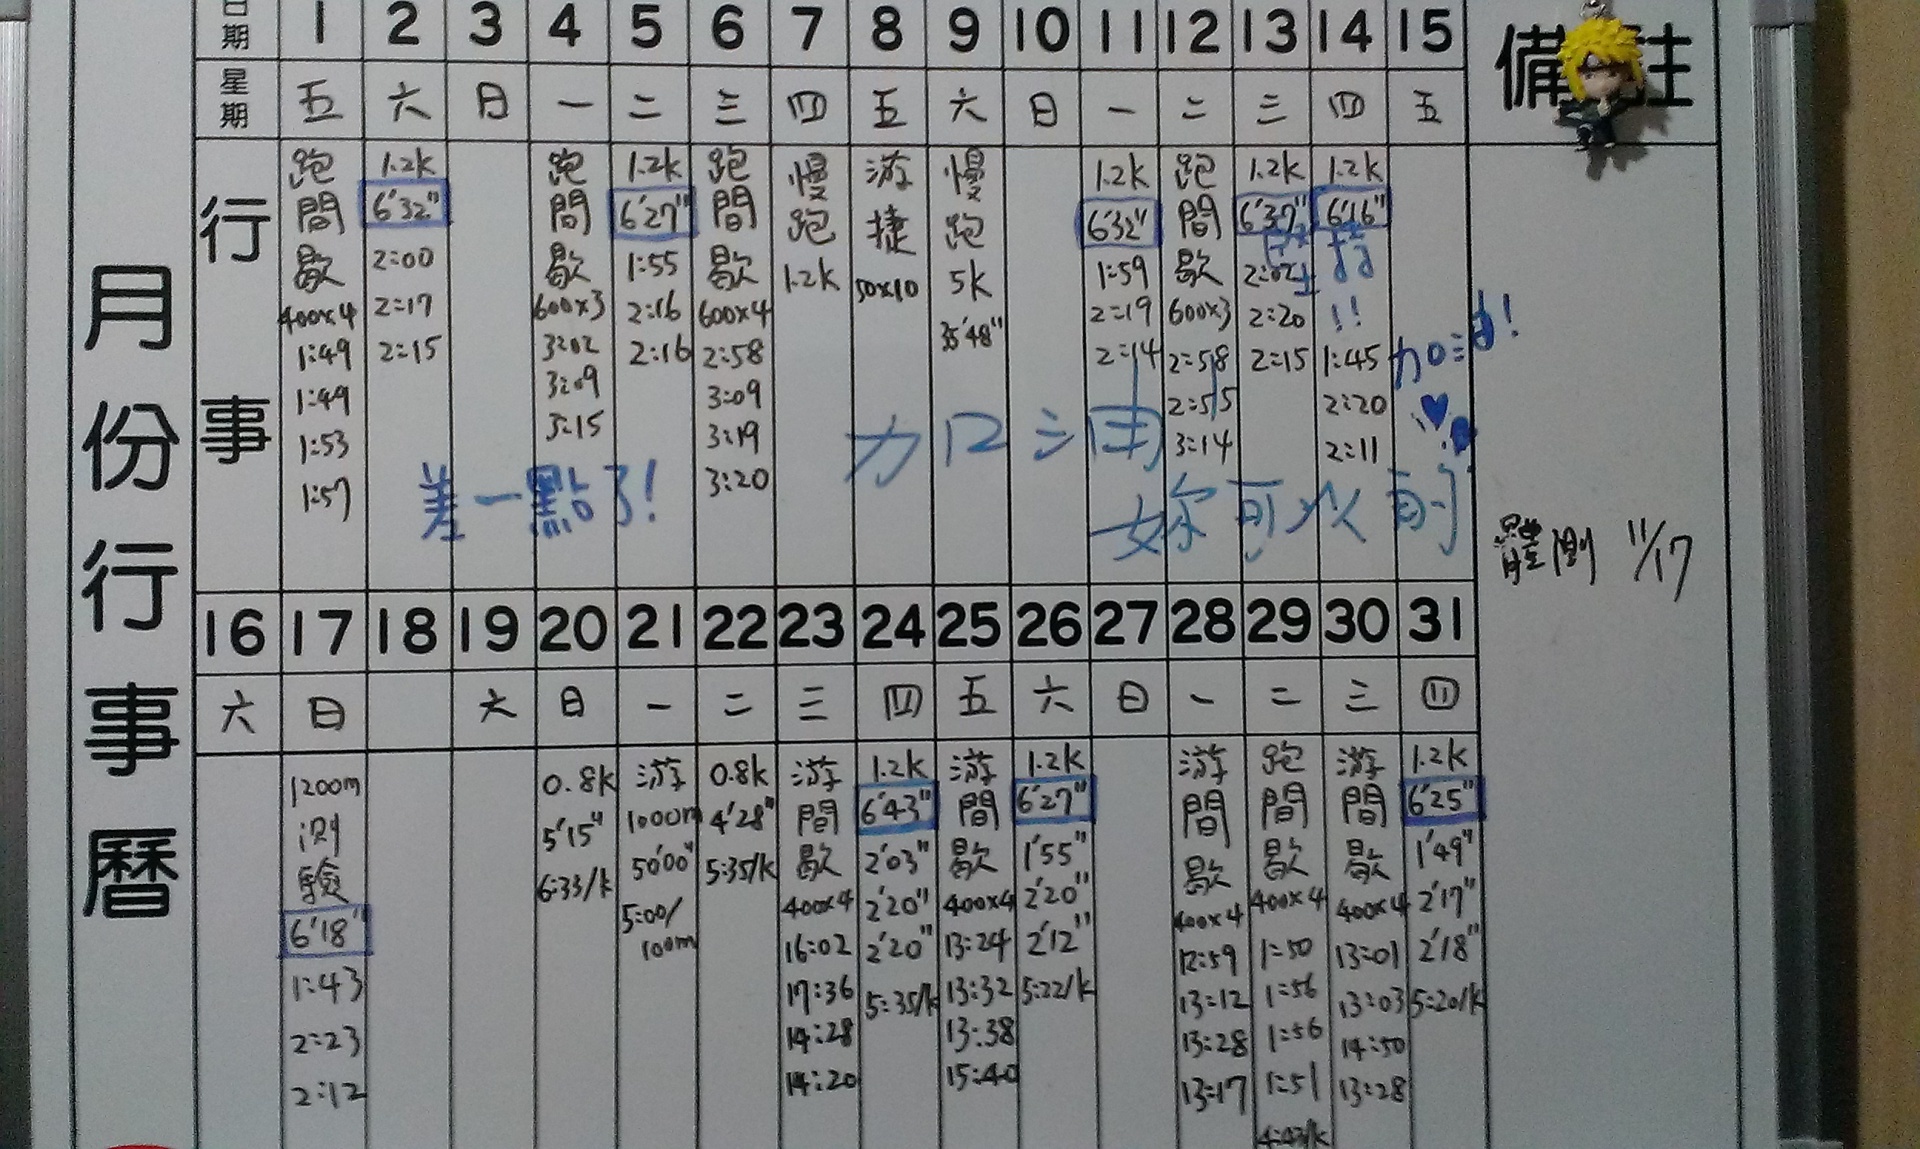 月份行事曆
日期 1 2 3 4 5 6 7 8 9 10 11 12 13 14 15 備註
星期 五 六 日 一 二 三 四 五 六 日 一 二 三 四 五
行事
跑間歇
400x4
1:49
1:49
1:53
1:57
1.2k
6'32"
2:00
2:17
2:15
跑間歇
600x3
3:02
3:09
3:15
1.2k
6'27"
1:55
2:16
2:16
跑間歇
600x4
2:58
3:09
3:19
3:20
慢跑
1.2k
游捷
50x10
慢跑
5k
1.2k
6'32"
1:59
2:19
2:14
跑間歇
600x3
2:58
2:55
3:14
1.2k
6'37"
2:02
2:20
2:15
1.2k
6'16"
!!
1:45
2:20
2:11
差一點了!
加油
妳可以的
加油!
體測 11/17
16 17 18 19 20 21 22 23 24 25 26 27 28 29 30 31
六 日 六 日 一 二 三 四 五 六 日 一 二 三 四
1200m
測驗
6'18"
1:43
2:23
2:12
0.8k
5'15"
6:33/k
游
1000m
50'00"
5:00/
100m
0.8k
4'28"
5:35/k
游間歇
400x4
16:02
17:36
14:28
14:20
1.2k
6'43"
2'03"
2'20"
2'20"
5:35/k
游間歇
400x4
13:24
13:32
13:38
15:40
1.2k
6'27"
1'55"
2'20"
2'12"
5:22/k
游間歇
400x4
12:59
13:12
13:28
13:17
跑間歇
400x4
1:50
1:56
1:56
1:51
4:43/k
游間歇
400x4
13:01
13:03
14:50
13:28
1.2k
6'25"
1'49"
2'17"
2'18"
5:20/k